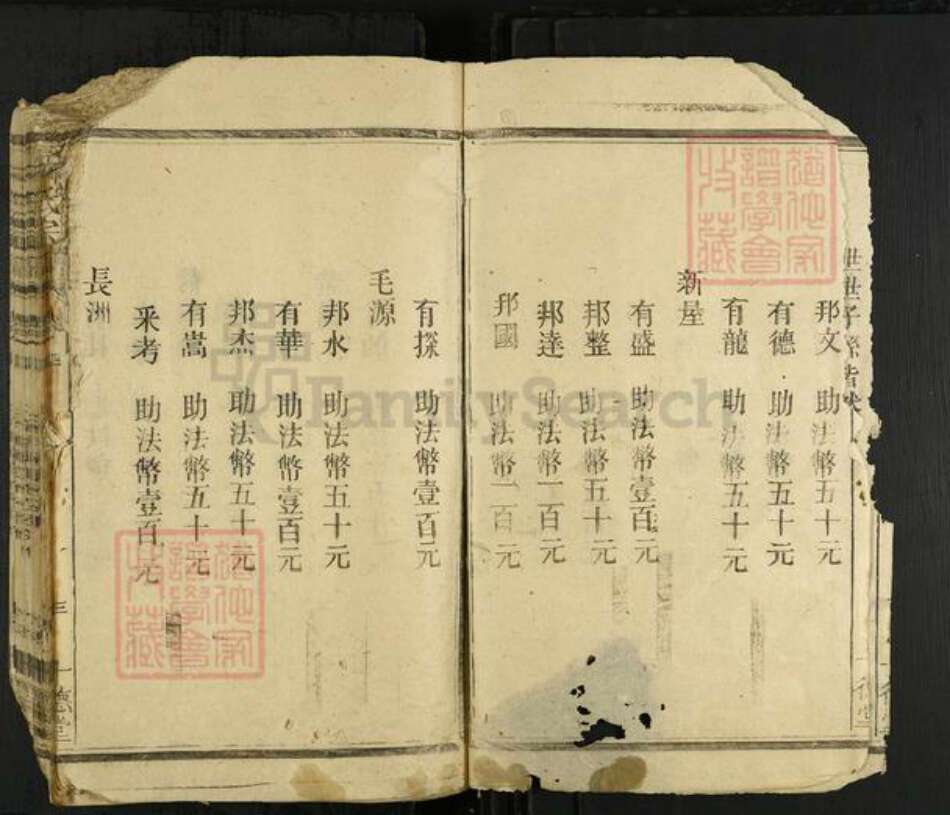 邦文 助法幣五十元
有德 助法幣五十元
有龍 助法幣五十元
新屋
有盛 助法幣壹百元
邦整 助法幣五十元
邦達 助法幣一百元
邦國 助法幣一百元
有探 助法幣壹百元
毛源
邦水 助法幣五十元
有華 助法幣壹百元
邦杰 助法幣五十元
有嵩 助法幣五十元
采考 助法幣壹百元
長洲
FamilySearch